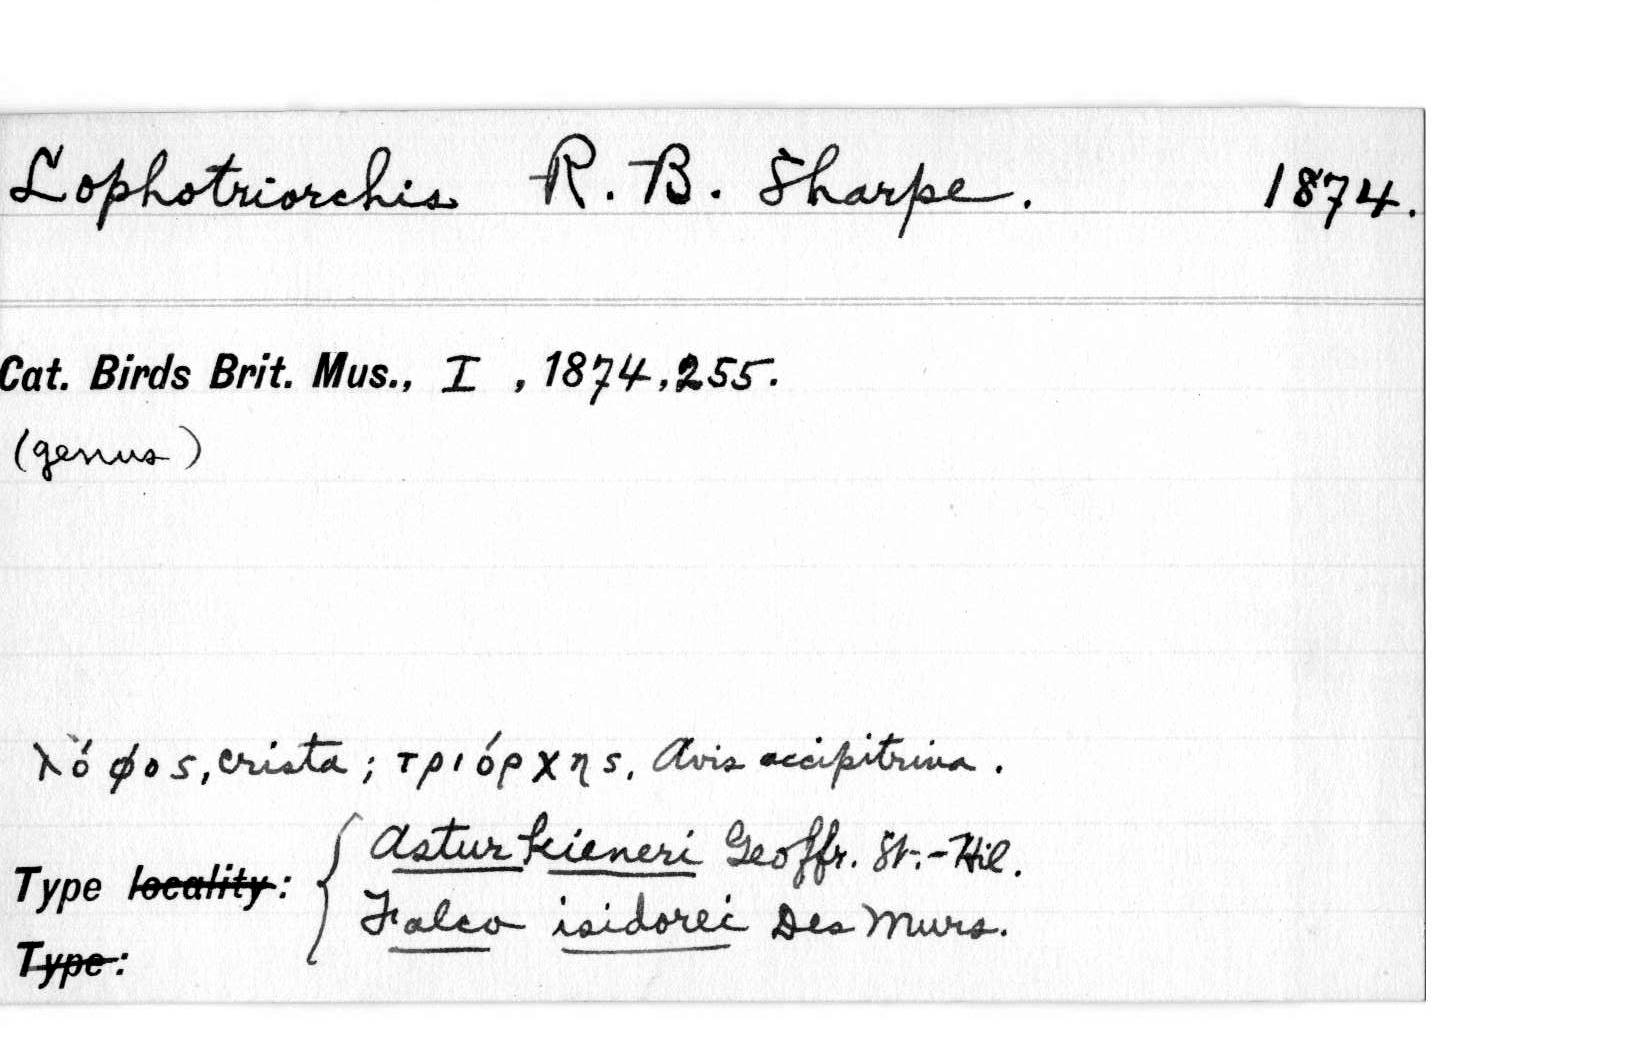 Lophotriorchis R. B. Sharpe. 1874.
Cat. Birds Brit. Mus., I , 1874, 255.
(genus)
λόφος, crista ; τριόρχης, Avis accipitrina .
Astur kieneri Geoffr. St.-Hil.
Type locality :
Falco isidorei Des Murs.
Type :